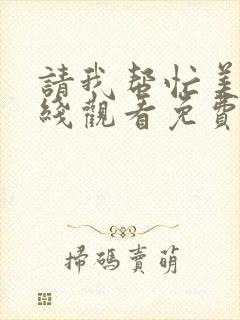 請我幫忙美
綫觀看免費
掃碼賣萌